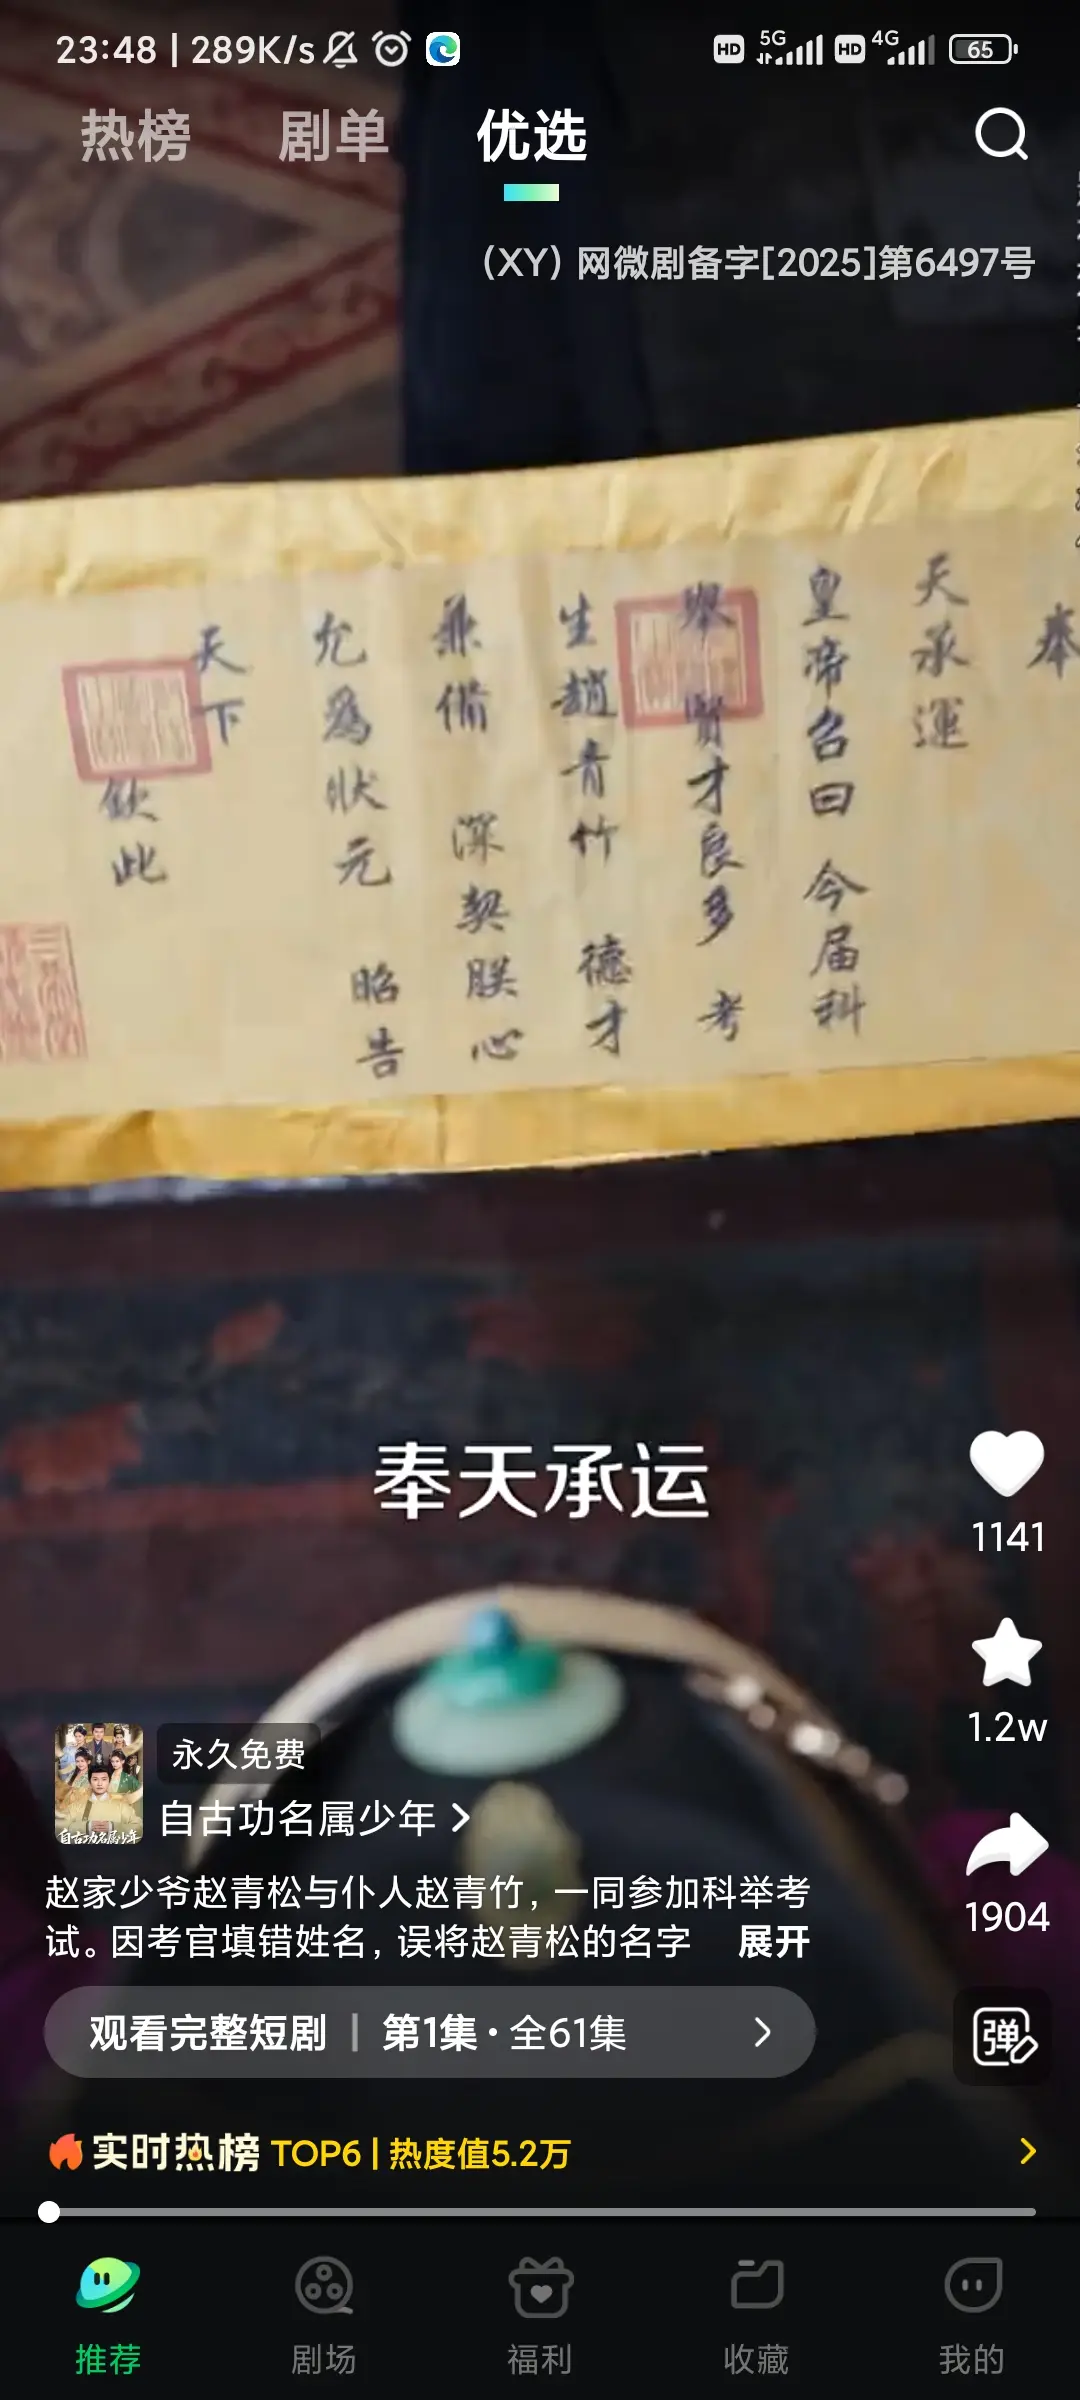 23:48 | 289K/s
HD 5G HD 4G 65
热榜 剧单 优选
(XY) 网微剧备字[2025]第6497号
奉
天承運
皇帝召曰 今届科
舉賢才良多 考
生趙青竹 德才
兼備 深契朕心
允為狀元 昭告
天下
欽此
奉天承运
1141
1.2w
永久免费
自古功名属少年
自古功名属少年 >
1904
赵家少爷赵青松与仆人赵青竹，一同参加科举考
试。因考官填错姓名，误将赵青松的名字 展开
观看完整短剧 | 第1集·全61集 >
弹
实时热榜 TOP6 | 热度值5.2万 >
推荐 剧场 福利 收藏 我的